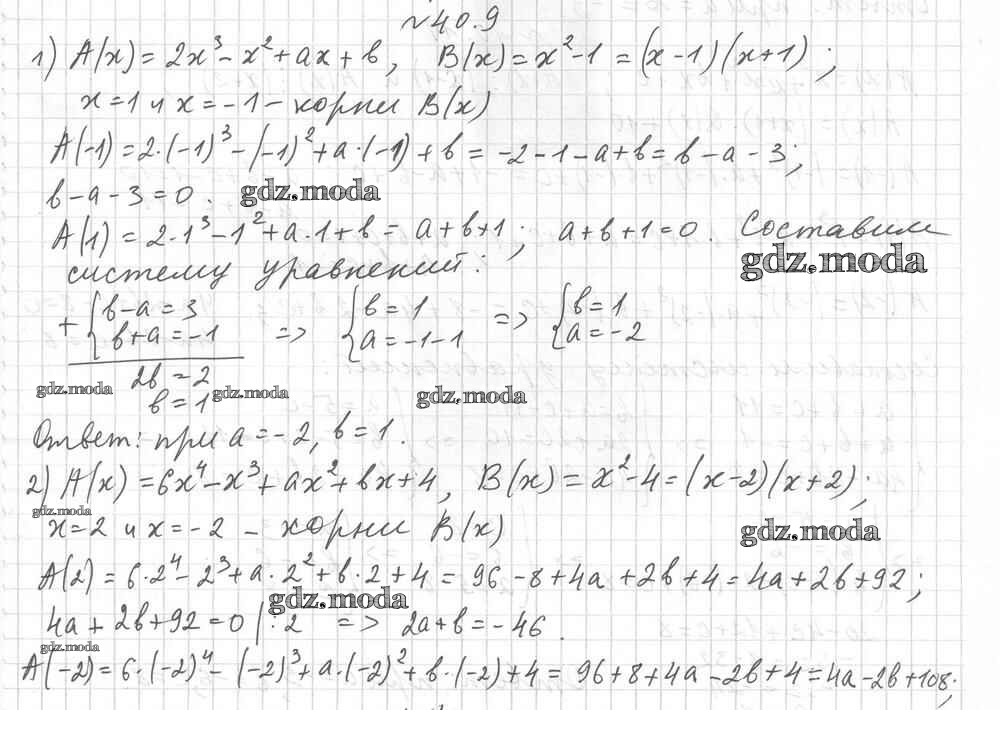 №40.9
1) A(x) = 2x³ - x² + ax + b, B(x) = x² - 1 = (x-1)(x+1);
x = 1 и x = -1 - корни B(x)
A(-1) = 2·(-1)³ - (-1)² + a·(-1) + b = -2 - 1 - a + b = b - a - 3;
b - a - 3 = 0. gdz.moda
A(1) = 2·1³ - 1² + a·1 + b = a + b + 1; a + b + 1 = 0. Составим
систему уравнений: gdz.moda
+ { b - a = 3 => { b = 1 => { b = 1
b + a = -1 a = -1 - 1 a = -2
gdz.moda 2b = 2 gdz.moda gdz.moda
b = 1
Ответ: при a = -2, b = 1.
2) A(x) = 6x⁴ - x³ + ax² + bx + 4, B(x) = x² - 4 = (x-2)(x+2);
gdz.moda
x = 2 и x = -2 - корни B(x) gdz.moda
A(2) = 6·2⁴ - 2³ + a·2² + b·2 + 4 = 96 - 8 + 4a + 2b + 4 = 4a + 2b + 92;
gdz.moda
4a + 2b + 92 = 0 |:2 => 2a + b = -46.
gdz.moda
A(-2) = 6·(-2)⁴ - (-2)³ + a·(-2)² + b·(-2) + 4 = 96 + 8 + 4a - 2b + 4 = 4a - 2b + 108;